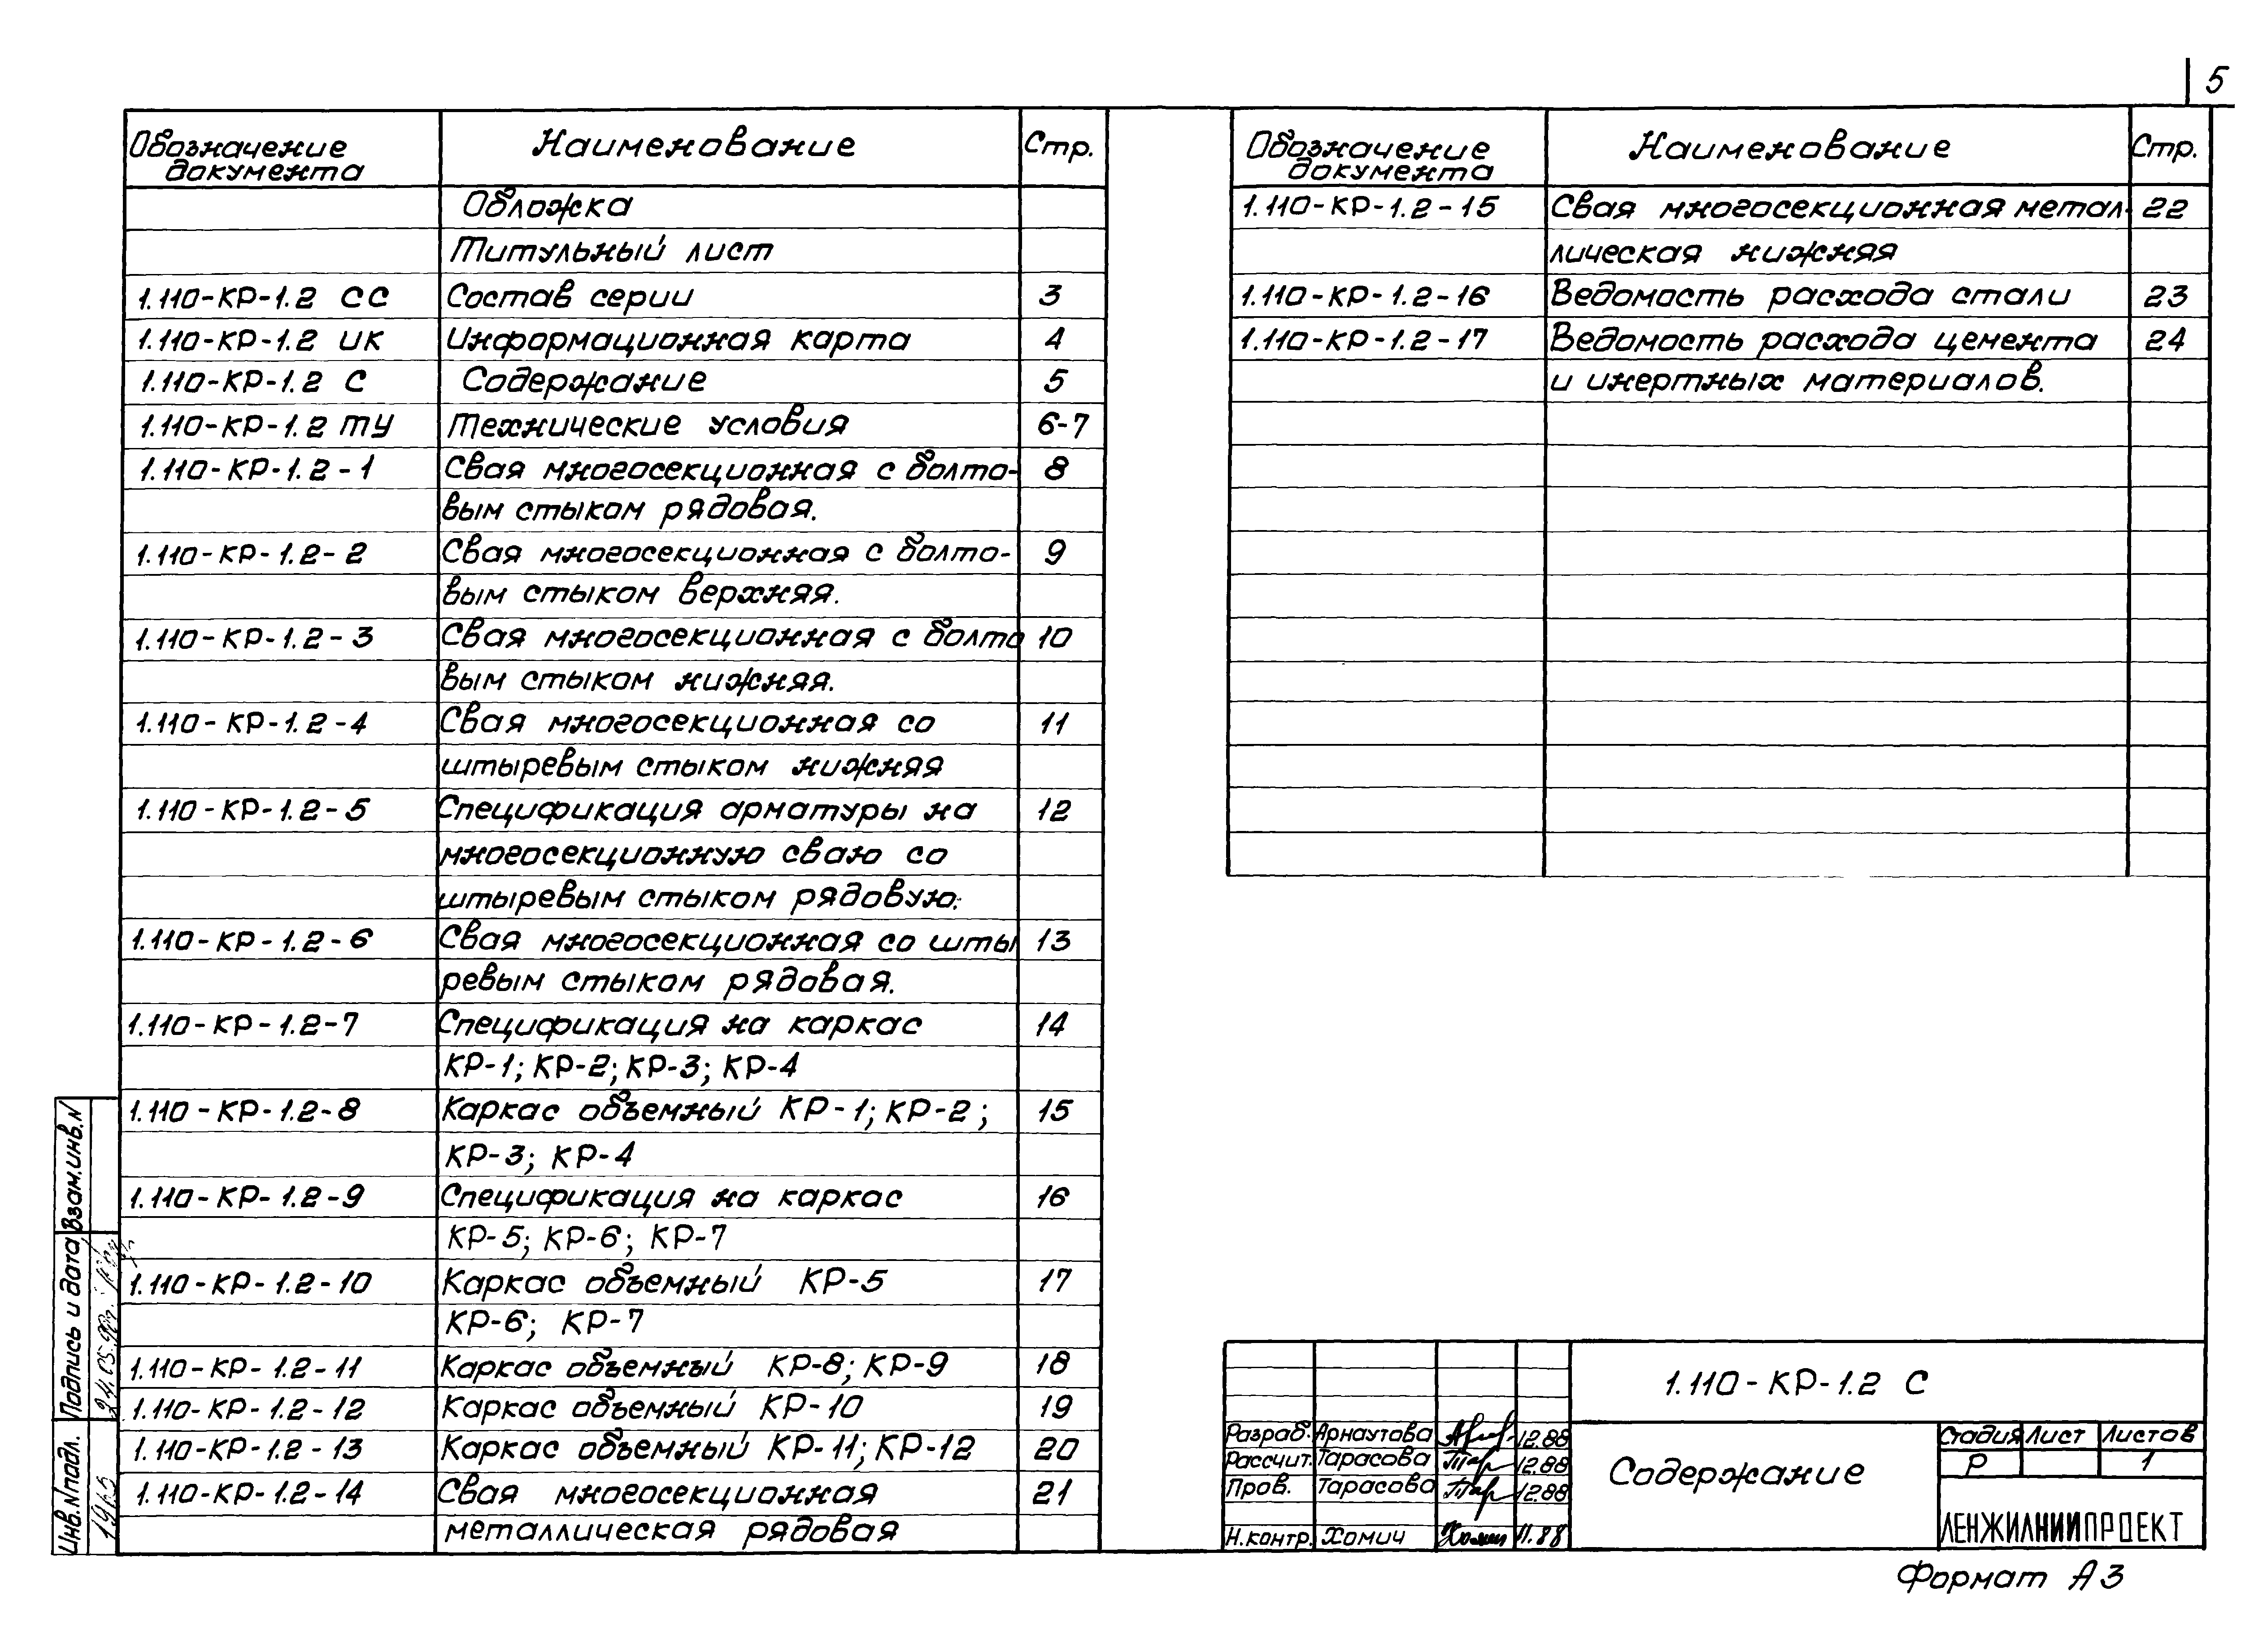 5
Обозначение документа Наименование Стр.
Обложка
Титульный лист
1.110-КР-1.2 СС Состав серии 3
1.110-КР-1.2 ИК Информационная карта 4
1.110-КР-1.2 С Содержание 5
1.110-КР-1.2 ТУ Технические условия 6-7
1.110-КР-1.2-1 Свая многосекционная с болто- 8
вым стыком рядовая.
1.110-КР-1.2-2 Свая многосекционная с болто- 9
вым стыком верхняя.
1.110-КР-1.2-3 Свая многосекционная с болто 10
вым стыком нижняя.
1.110-КР-1.2-4 Свая многосекционная со 11
штыревым стыком нижняя
1.110-КР-1.2-5 Спецификация арматуры на 12
многосекционную сваю со
штыревым стыком рядовую.
1.110-КР-1.2-6 Свая многосекционная со шты 13
ревым стыком рядовая.
1.110-КР-1.2-7 Спецификация на каркас 14
КР-1; КР-2; КР-3; КР-4
1.110-КР-1.2-8 Каркас объемный КР-1; КР-2; 15
КР-3; КР-4
1.110-КР-1.2-9 Спецификация на каркас 16
КР-5; КР-6; КР-7
1.110-КР-1.2-10 Каркас объемный КР-5 17
КР-6; КР-7
1.110-КР-1.2-11 Каркас объемный КР-8; КР-9 18
1.110-КР-1.2-12 Каркас объемный КР-10 19
1.110-КР-1.2-13 Каркас объемный КР-11; КР-12 20
1.110-КР-1.2-14 Свая многосекционная 21
металлическая рядовая
Обозначение документа Наименование Стр.
1.110-КР-1.2-15 Свая многосекционная метал- 22
лическая нижняя
1.110-КР-1.2-16 Ведомость расхода стали 23
1.110-КР-1.2-17 Ведомость расхода цемента 24
и инертных материалов.
Взам.инв.N
Подпись и дата 24.05.90г.
Инв.Nподл.
1.110-КР-1.2 С
Разраб. Арнаутова 12.88
Рассчит. Тарасова Тар 12.88
Пров. Тарасова Тар 12.88
Н.контр. Хомич Хомич 11.88
Содержание
Стадия Лист Листов
Р 1
ЛЕНЖИЛНИИПРОЕКТ
Формат А3